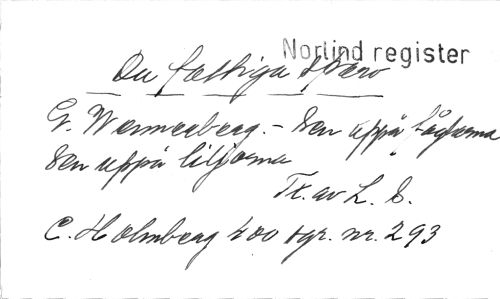 Norlind register
Du fattiga sparv
G. Wennerberg. - Sen uppå fåglarna
Sen uppå liljorna
Tr. av L. S.
C. Holmberg 400 sgr. nr. 293